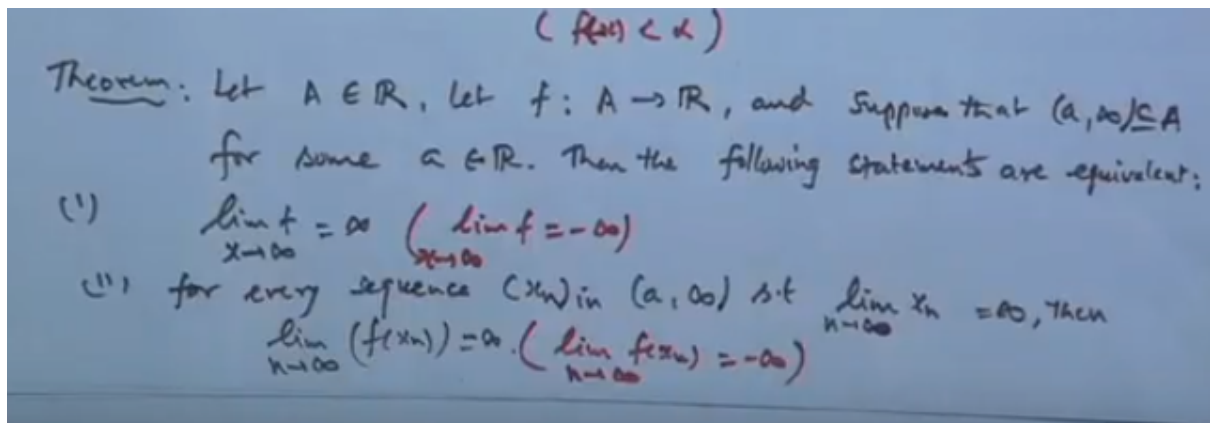 ( f(x) < α )
Theorem: Let A ∈ ℝ, Let f: A → ℝ, and suppose that (a, ∞) ⊆ A
for some a ∈ ℝ. Then the following statements are equivalent:
(i) lim f = ∞ ( lim f = -∞)
x→∞ x→∞
(ii) for every sequence (xn) in (a, ∞) s.t lim xn = ∞, then
n→∞
lim (f(xn)) = ∞. ( lim f(xn) = -∞)
n→∞ n→∞